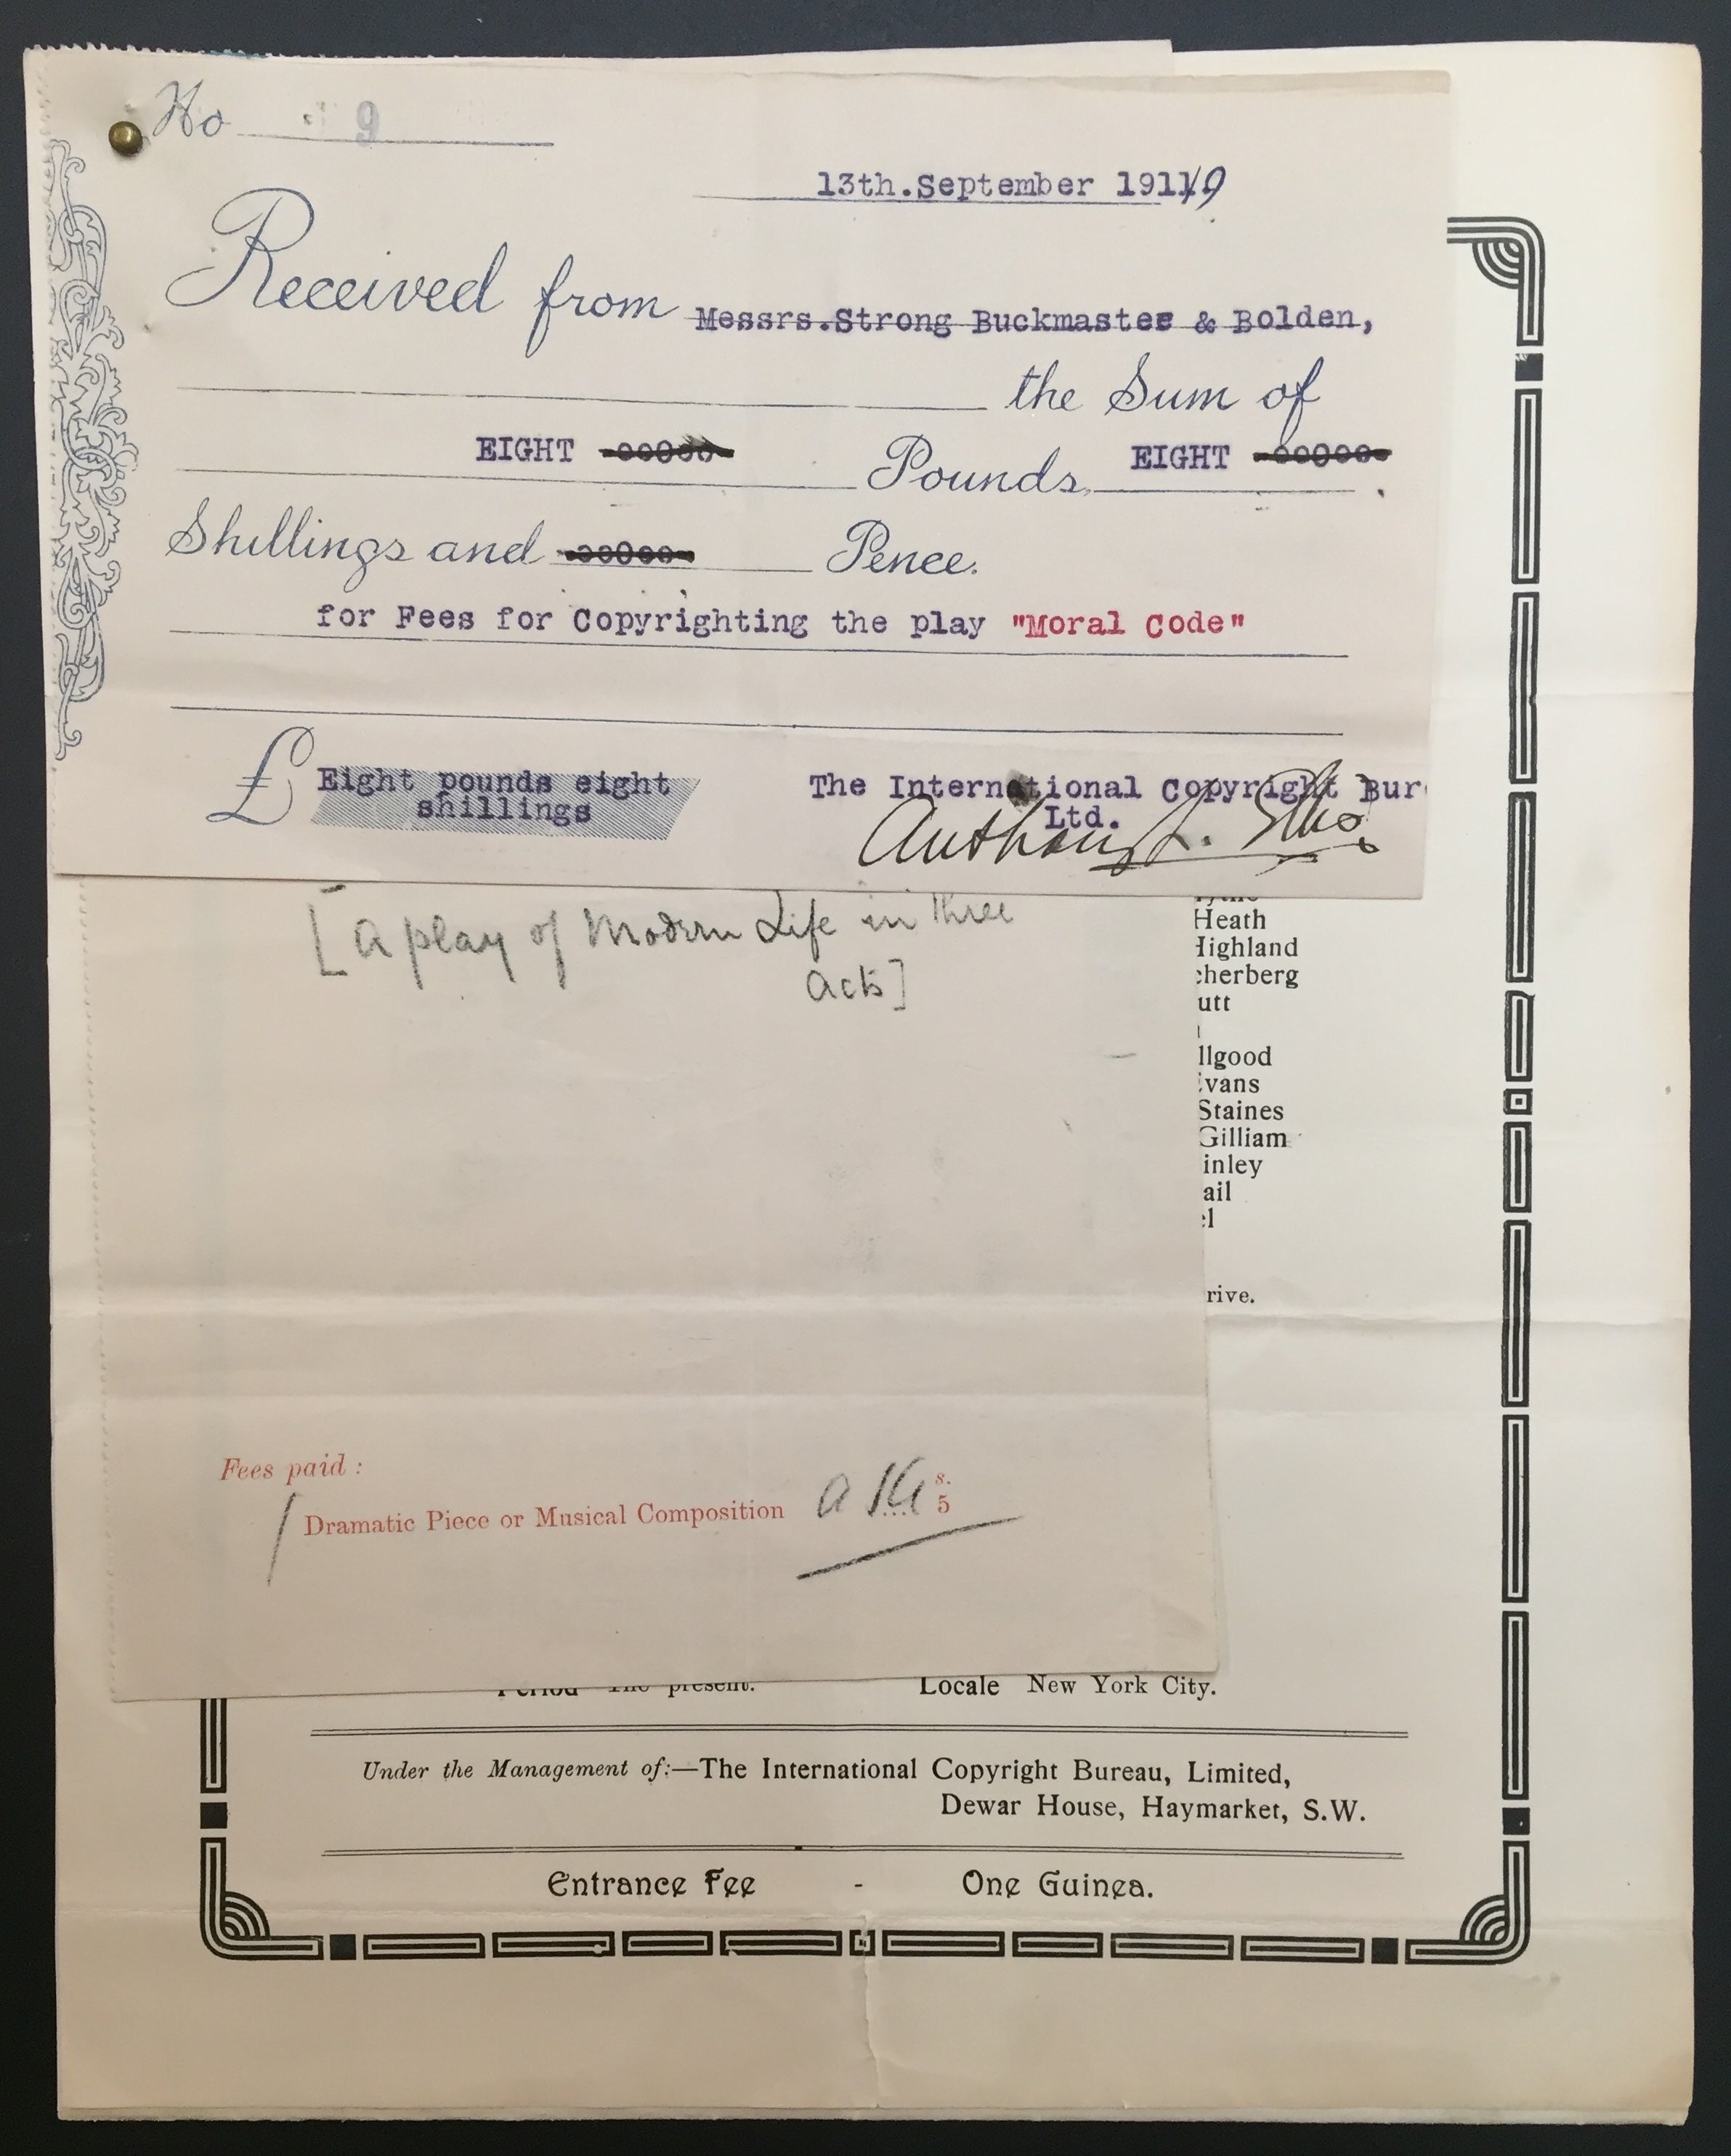 No 9
13th.September 191
Received from Messrs.Strong Buckmaster & Bolden,
the Sum of
EIGHT Pounds, EIGHT
Shillings and Pence.
for Fees for Copyrighting the play "Moral Code"
£ Eight pounds eight
shillings
The International Copyright Bur
Ltd.
[a play of Modern Life in three
acts]
Heath
Highland
cherberg
utt
llgood
Evans
Staines
Gilliam
inley
ail
el
rive.
Fees paid :
Dramatic Piece or Musical Composition
s.
5
Period The present. Locale New York City.
Under the Management of:—The International Copyright Bureau, Limited,
Dewar House, Haymarket, S.W.
Entrance Fee - One Guinea.